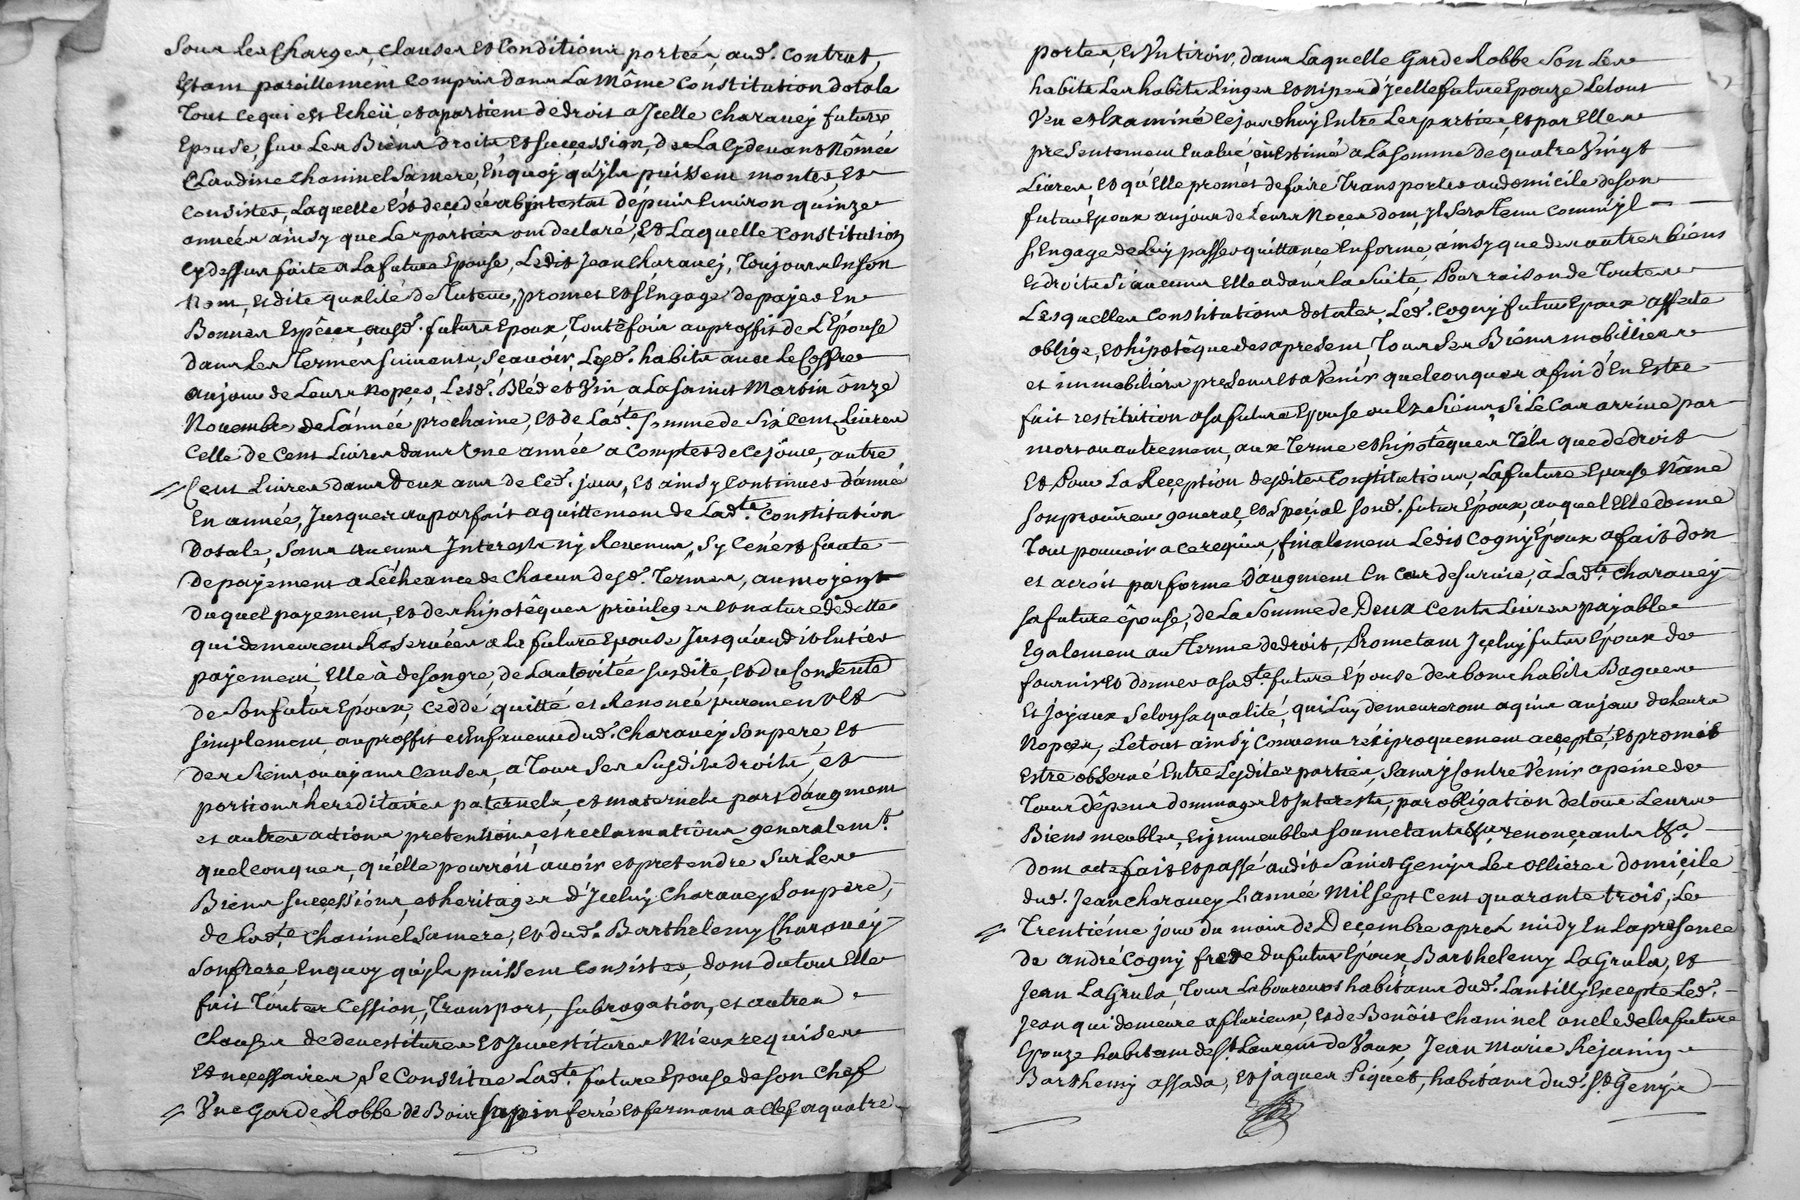 Sous les Charges, clauses et Conditions portées, aud. contrat,
Etant pareillement compris dans La même constitution dotale
Tout ce qui est Echeü, et apartient de droit a Icelle charavey future
Epouse, sur Les Biens droits et succession, de La cydevant nômée
Claudine chaninel Sa mere, En quoy qu'jls puissent monter, et
Consister, Laquelle Est decedée abjntestat dépuis Environ quinze
années ainsy que Les parties ont declaré, Et Laquelle Constitution
cy dessus faite a La future Epouse, Ledit Jean Charavej, Toujours En son
Nom, et dite qualité de Tuteur, promet et s'Engage de payer En
Bonnes Espêces, ausd. futurs Epoux, Toutefois au proffit de L'Épouse
dans Les Termes suivants, sçavoir, Lesd. habits avec Le Coffre
au jour de Leurs Nopces, Lesd. Bléd et Vin a La saint Martin ônze
Novembre de L'année prochaine, et de Lad.te somme de six cent Livres
Celle de cent Livres dans Une année a compter de ce jour, autre
Cent Livres dans Deux ans de Ced. jour, et ainsy continuer d'année
En année, Jusques au parfait aquittement de Lad.te Constitution
Dotale, sans aucuns Interests nj Revenus, sy Cen'est faute
de payement a L'écheance de chacun desd. Termes, au moyent
duquel payement, et des hipotêques privileges et nature de dette
qui demeurent Reservées a la future Epouse Jusqu'audit Entier
payement, Elle à de son gre, de L'autoritée susdite, et du Consente
de son futur Epoux, ceddé quitté et Renoncé purement Et
simplement, au proffit et En faveur dud. Charavey son pere, et
des siens, ou ajant causes, a Tous ses susdits droits, et
portions hereditaires paternels, et maternels part d'augment
et autres actions pretentions, et reclamations generalem.t
quelconques, qu'elle pourroit avoir et pretendre sur Les
Biens successions, et heritages d'Jceluy Charavey son pere,
de Lad.te Chaninel sa mere, et dud. Barthelemy Charavey
son frere, En quoy qu'jls puissent consister, dont du tout Elle
fait Toutes Cession, Transport, subrogation, et autres
Clauses de devestitures Et Jnvestitures Mieux requises
Et necessaires, Se Constitue Lad.te future Epouse de son chef
Une Garde Robbe de Bois sapin ferré et fermant a clef a quatre
portes, et Un tiroir, dans Laquelle Garde Robbe son Les
habits Les habits Linges et nipes d'Jcelle future Epouze Le tout
Veu et Examiné Ce jourdhuy Entre Les parties, et par Elles
presentement Evalué, et Estimé a La somme de quatre Vingt
Livres, Et qu'Elle promet de faire Transporter au domicile de son
futur Epoux au jour de Leurs Noces dont jl sera Tenu comm'jl
s'Engage de Luy passer quittance En forme, ainsy que des autres biens
Et droits si aucuns Elle a dans la suite, Pour raison de Toutes
Lesquelles constitutions dotales, Led. Cogny futur Epoux affecte
oblige, et hipotêque des apresent, Tous ses Biens mobilliers
et immobiliérs presents et a Venir quelconques afin d'En Estre
fait restitution a sa future Epouse ou Ez Siens, Si Le Cas arrive par
mort ou autrement, aux Terme et hipotêques Têls que de droit
Et Pour La Reception desdites Constitutions, La future Epouse Nôme
son procureur general, et special sond. futur Epoux, auquel Elle donne
Tout pouvoir a ce requis, finalement Ledit Cogny Epoux a fait don
et acroit par forme d'augment En cas de survie, à Lad.te Charavey
sa future êpouse, de La somme de Deux cents Livres payable
Egalement au Terme de droit, Prometant Jceluy futur Epoux de
fournir et donner a sad.te future Épouse des bons habits Bagues
Et Joyaux Selon sa qualité, qui Luy demeureront aquis au jour de Leurs
Nopces, Le tout ainsy convenu réciproquement accepté, et promis
Estre observé Entre Lesdites parties, sans y contre Venir a peine de
Tous dêpens dommages et Interests, par obligation de tous Leurs
Biens meubles, et jmmeubles soumetants &a renonçants &a.
dont acte fait et passé audit Saint Genis Les ollieres domicile
dud. Jean charavey L'année mil sept cent quarante trois, Le
Trentiéme jour du mois de Decembre apres midy En La presence
de andré Cogny frere du futur Epoux Barthelemy La Grula, et
Jean La Grula, Tous Laboureurs habitans dud. Lantilly Excepté Led.
Jean qui demeure a flurieux, et de Benôit chaninel oncle de la future
Epouze habitant de S.t Laurent de Vaux, Jean Marie Rejanin
Barthemy assada, et jaques Piquet, habitans dud. S.t Genis